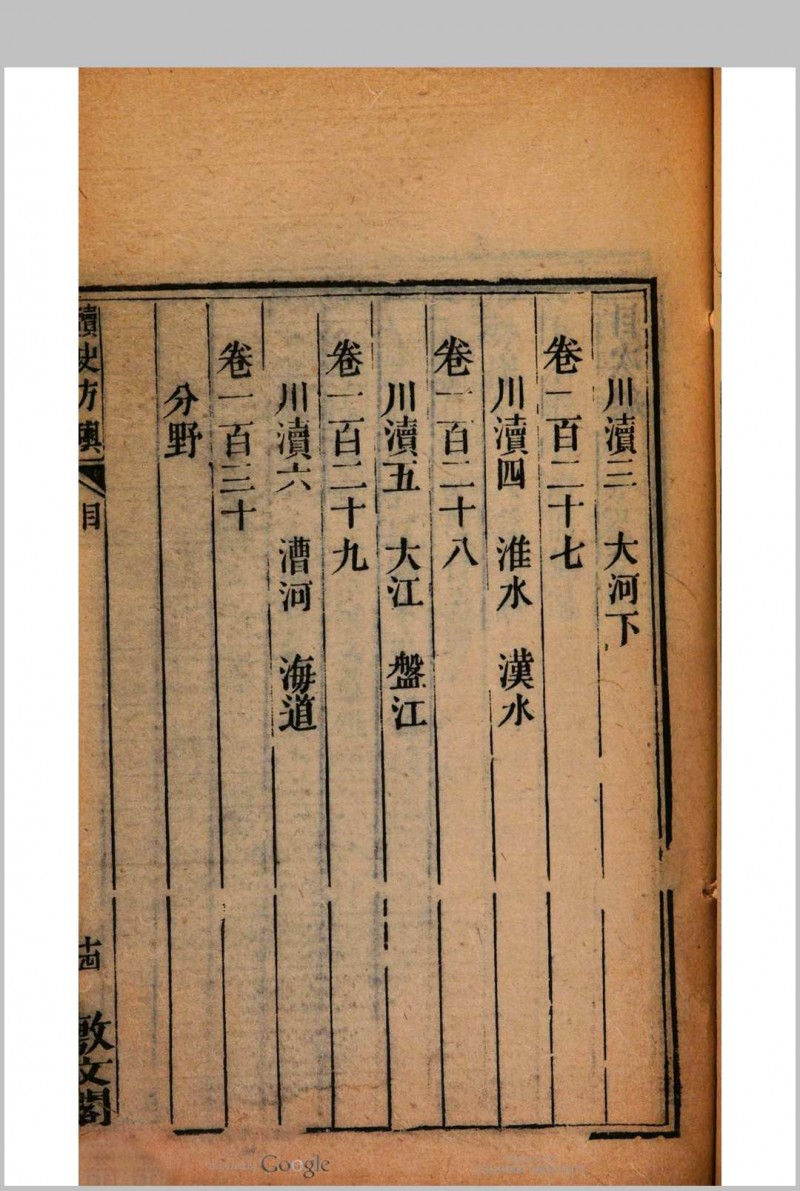 川瀆三　大河下
卷一百二十七
川瀆四　淮水　漢水
卷一百二十八
川瀆五　大江　盤江
卷一百二十九
川瀆六　漕河　海道
卷一百三十
分野
讀史方輿　目　十四　敷文閣
Google